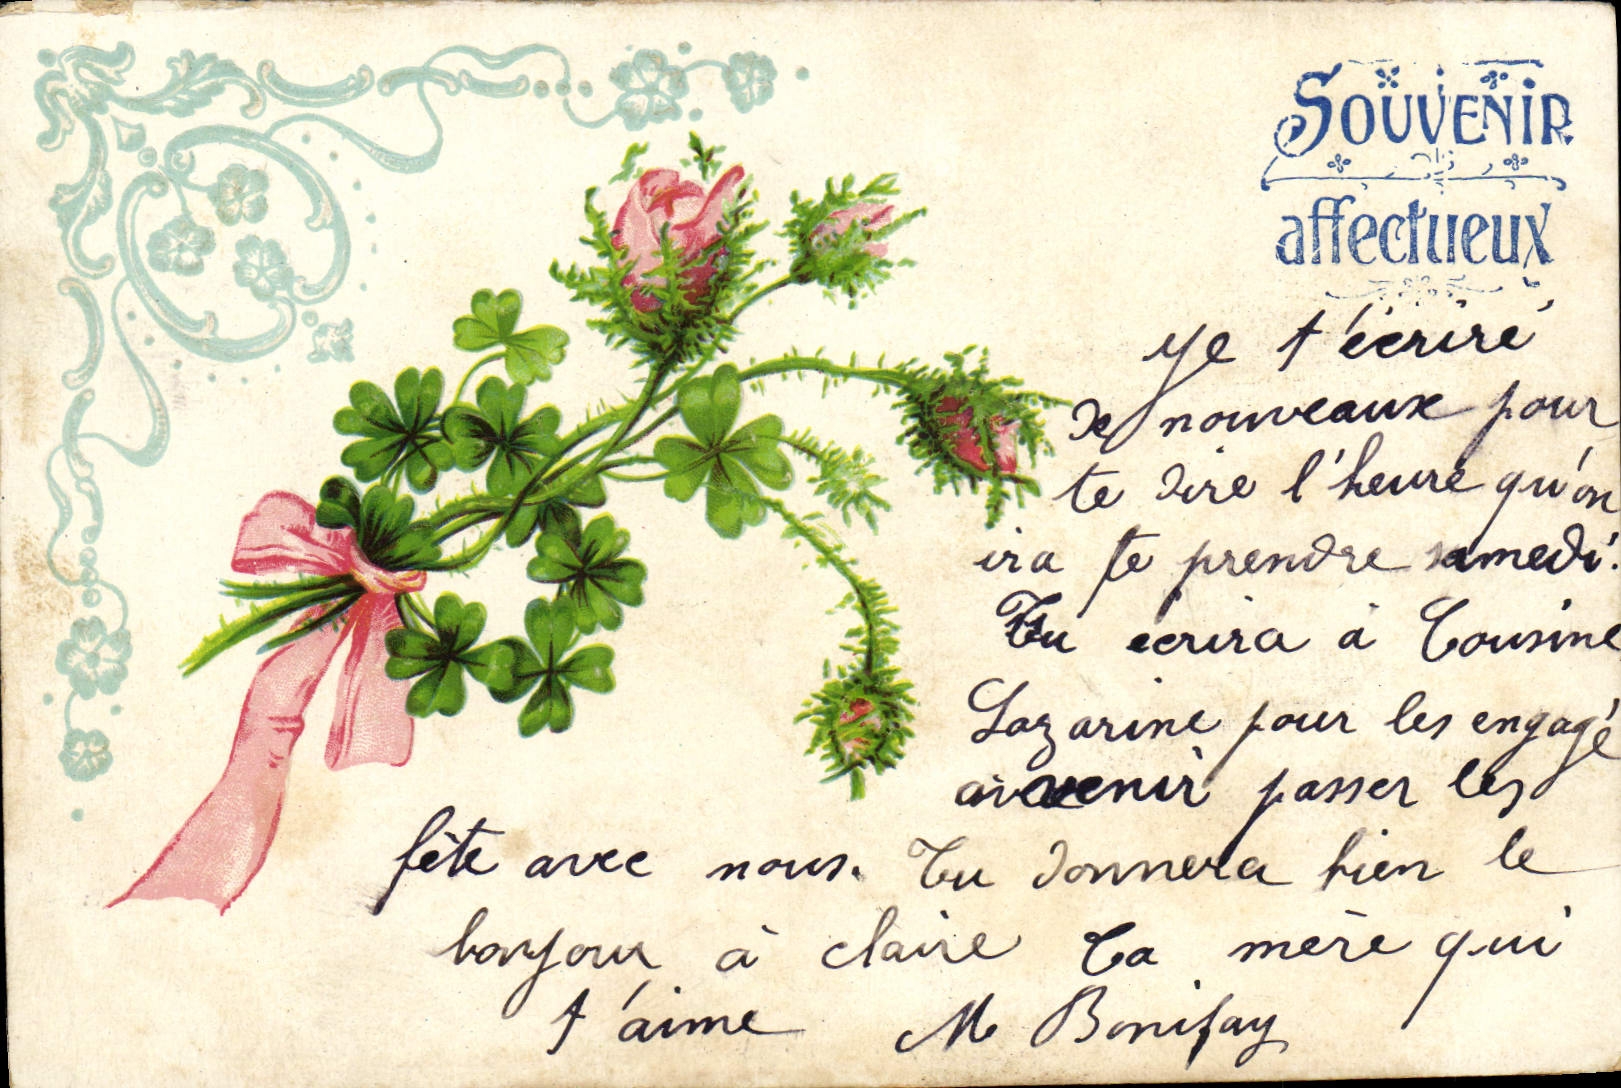 Souvenir
affectueux
Je t'écriré
de nouveaux pour
te dire l'heure qu'on
ira te prendre samedi.
Tu écrira à Cousine
Lazarine pour les engagé
a venir passer les
fête avec nous. Tu donnera bien le
bonjour à claire Ta mère qui
t'aime M Bonifay